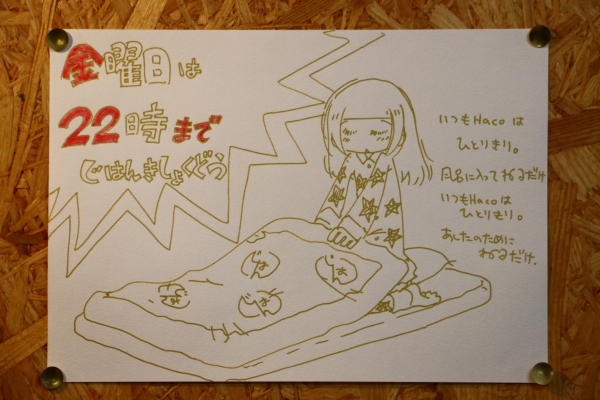 金曜日は
22時まで
じはんきしょくどう
いつもHacoは
ひとりきり。
風呂に入ってねるだけ
いつもHacoは
ひとりきり。
あしたのために
ねるだけ。
じはん
じはん
じはん
じはん